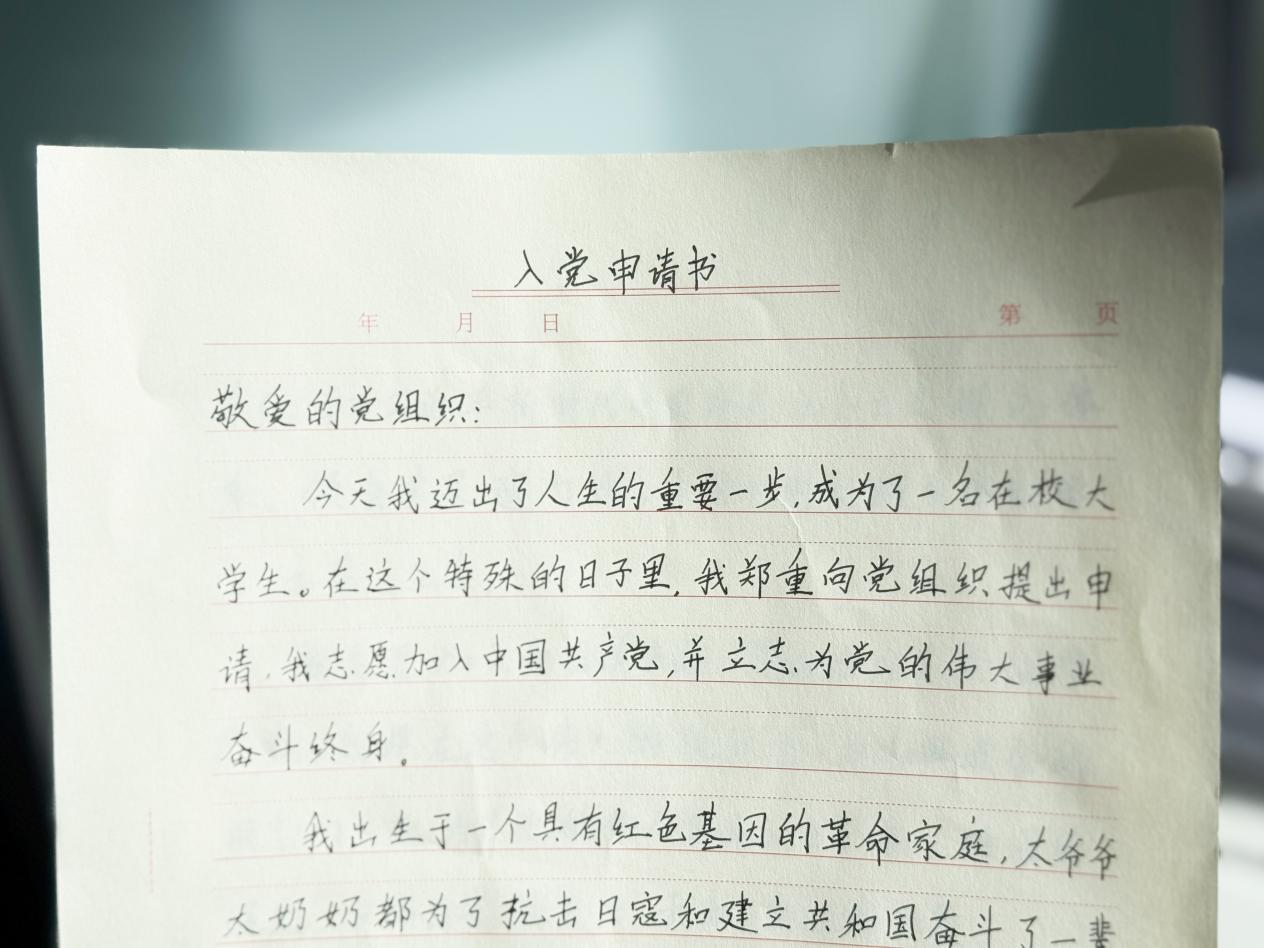 入党申请书
年 月 日 第 页
敬爱的党组织:
今天我迈出了人生的重要一步,成为了一名在校大
学生。在这个特殊的日子里,我郑重向党组织提出申
请,我志愿加入中国共产党,并立志为党的伟大事业
奋斗终身。
我出生于一个具有红色基因的革命家庭,太爷爷
太奶奶都为了抗击日寇和建立共和国奋斗了一辈